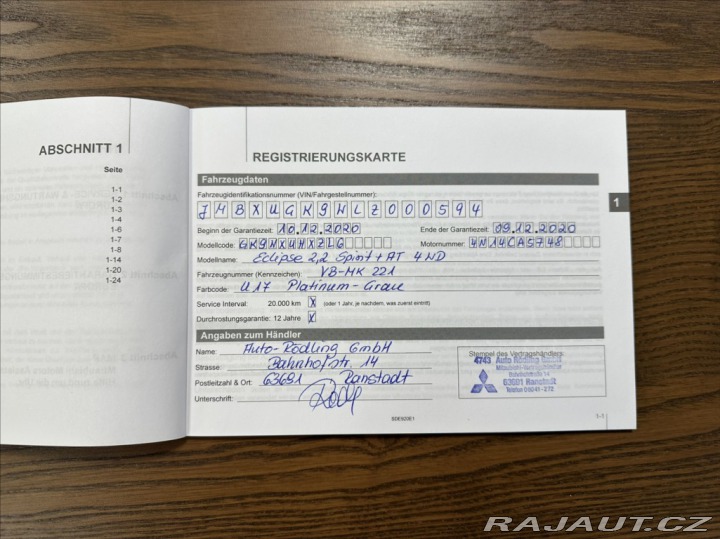 ABSCHNITT 1
Seite
1-1
1-2
1-3
1-4
1-6
1-7
1-8
1-14
1-20
1-24
REGISTRIERUNGSKARTE
1
Fahrzeugdaten
Fahrzeugidentifikationsnummer (VIN/Fahrgestellnummer):
JMBXUGK9WLZ000594
Beginn der Garantiezeit: 10.12.2020 Ende der Garantiezeit: 09.12.2020
Modellcode: GK9WXUHXZL6 Motornummer: 4N14CA5748
Modellname: Eclipse 2,2 Spirit + AT 4WD
Fahrzeugnummer (Kennzeichen): VB-MK 221
Farbcode: U17 Platinum-Grau
Service Interval: 20.000 km X (oder 1 Jahr, je nachdem, was zuerst eintritt)
Durchrostungsgarantie: 12 Jahre X
Angaben zum Händler
Name: Auto-Rödling GmbH
Strasse: Bahnhofstr. 14
Postleitzahl & Ort: 63691 Ranstadt
Unterschrift:
Stempel des Vertragshändlers:
4743 Auto Rödling GmbH
Mitsubishi-Vertragshändler
Bahnhofstraße 14
63691 Ranstadt
1-1
RAJAUT.CZ